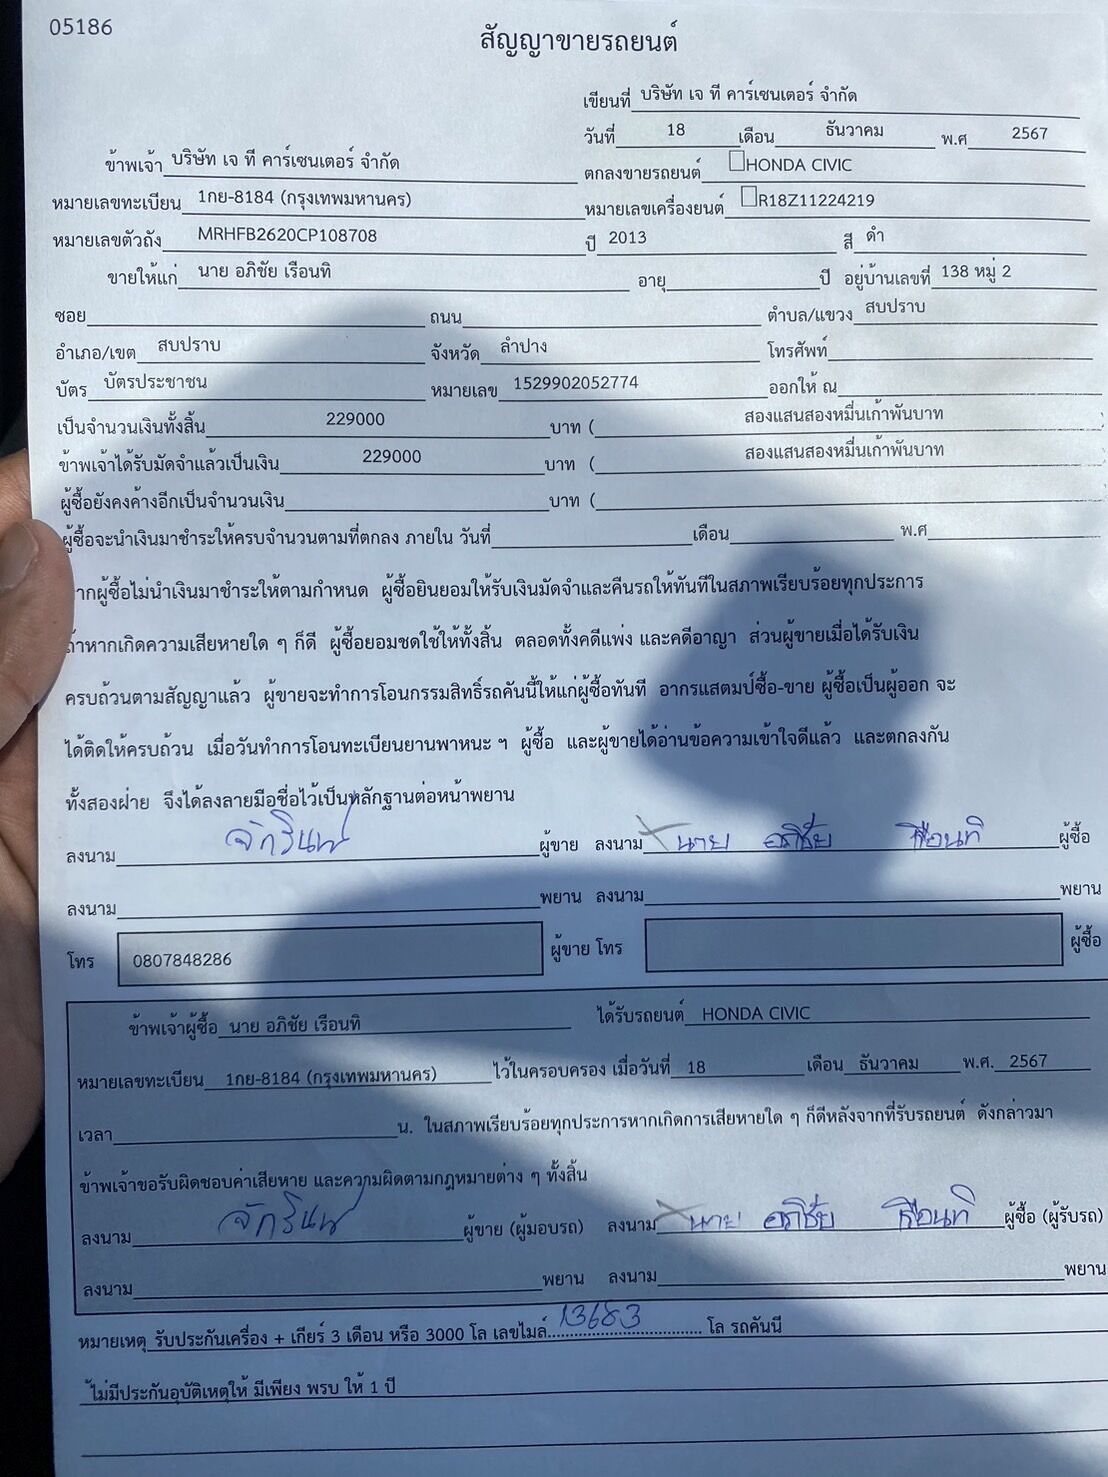 05186
สัญญาขายรถยนต์
เขียนที่ บริษัท เจ ที คาร์เซนเตอร์ จำกัด
วันที่ 18 เดือน ธันวาคม พ.ศ 2567
ข้าพเจ้า บริษัท เจ ที คาร์เซนเตอร์ จำกัด ตกลงขายรถยนต์ HONDA CIVIC
หมายเลขทะเบียน 1กย-8184 (กรุงเทพมหานคร) หมายเลขเครื่องยนต์ R18Z11224219
หมายเลขตัวถัง MRHFB2620CP108708 ปี 2013 สี ดำ
ขายให้แก่ นาย อภิชัย เรือนทิ อายุ ปี อยู่บ้านเลขที่ 138 หมู่ 2
ซอย ถนน ตำบล/แขวง สบปราบ
อำเภอ/เขต สบปราบ จังหวัด ลำปาง โทรศัพท์
บัตร บัตรประชาชน หมายเลข 1529902052774 ออกให้ ณ
เป็นจำนวนเงินทั้งสิ้น 229000 บาท ( สองแสนสองหมื่นเก้าพันบาท )
ข้าพเจ้าได้รับมัดจำแล้วเป็นเงิน 229000 บาท ( สองแสนสองหมื่นเก้าพันบาท
ผู้ซื้อยังคงค้างอีกเป็นจำนวนเงิน บาท (
ผู้ซื้อจะนำเงินมาชำระให้ครบจำนวนตามที่ตกลง ภายใน วันที่ เดือน พ.ศ
ากผู้ซื้อไม่นำเงินมาชำระให้ตามกำหนด ผู้ซื้อยินยอมให้รับเงินมัดจำและคืนรถให้ทันทีในสภาพเรียบร้อยทุกประการ
ถ้าหากเกิดความเสียหายใด ๆ ก็ดี ผู้ซื้อยอมชดใช้ให้ทั้งสิ้น ตลอดทั้งคดีแพ่ง และคดีอาญา ส่วนผู้ขายเมื่อได้รับเงิน
ครบถ้วนตามสัญญาแล้ว ผู้ขายจะทำการโอนกรรมสิทธิ์รถคันนี้ให้แก่ผู้ซื้อทันที อากรแสตมป์ซื้อ-ขาย ผู้ซื้อเป็นผู้ออก จะ
ได้ติดให้ครบถ้วน เมื่อวันทำการโอนทะเบียนยานพาหนะ ฯ ผู้ซื้อ และผู้ขายได้อ่านข้อความเข้าใจดีแล้ว และตกลงกัน
ทั้งสองฝ่าย จึงได้ลงลายมือชื่อไว้เป็นหลักฐานต่อหน้าพยาน
ลงนาม จักรินทร์ ผู้ขาย ลงนาม นาย อภิชัย เรือนทิ ผู้ซื้อ
ลงนาม พยาน ลงนาม พยาน
โทร 0807848286 ผู้ขาย โทร ผู้ซื้อ
ข้าพเจ้าผู้ซื้อ นาย อภิชัย เรือนทิ ได้รับรถยนต์ HONDA CIVIC
หมายเลขทะเบียน 1กย-8184 (กรุงเทพมหานคร) ไว้ในครอบครอง เมื่อวันที่ 18 เดือน ธันวาคม พ.ศ. 2567
เวลา น. ในสภาพเรียบร้อยทุกประการหากเกิดการเสียหายใด ๆ ก็ดีหลังจากที่รับรถยนต์ ดังกล่าวมา
ข้าพเจ้าขอรับผิดชอบค่าเสียหาย และความผิดตามกฎหมายต่าง ๆ ทั้งสิ้น
ลงนาม จักรินทร์ ผู้ขาย (ผู้มอบรถ) ลงนาม นาย อภิชัย เรือนทิ ผู้ซื้อ (ผู้รับรถ)
ลงนาม พยาน ลงนาม พยาน
หมายเหตุ รับประกันเครื่อง + เกียร์ 3 เดือน หรือ 3000 โล เลขไมล์ 13683 โล รถคันนี้
ไม่มีประกันอุบัติเหตุให้ มีเพียง พรบ ให้ 1 ปี